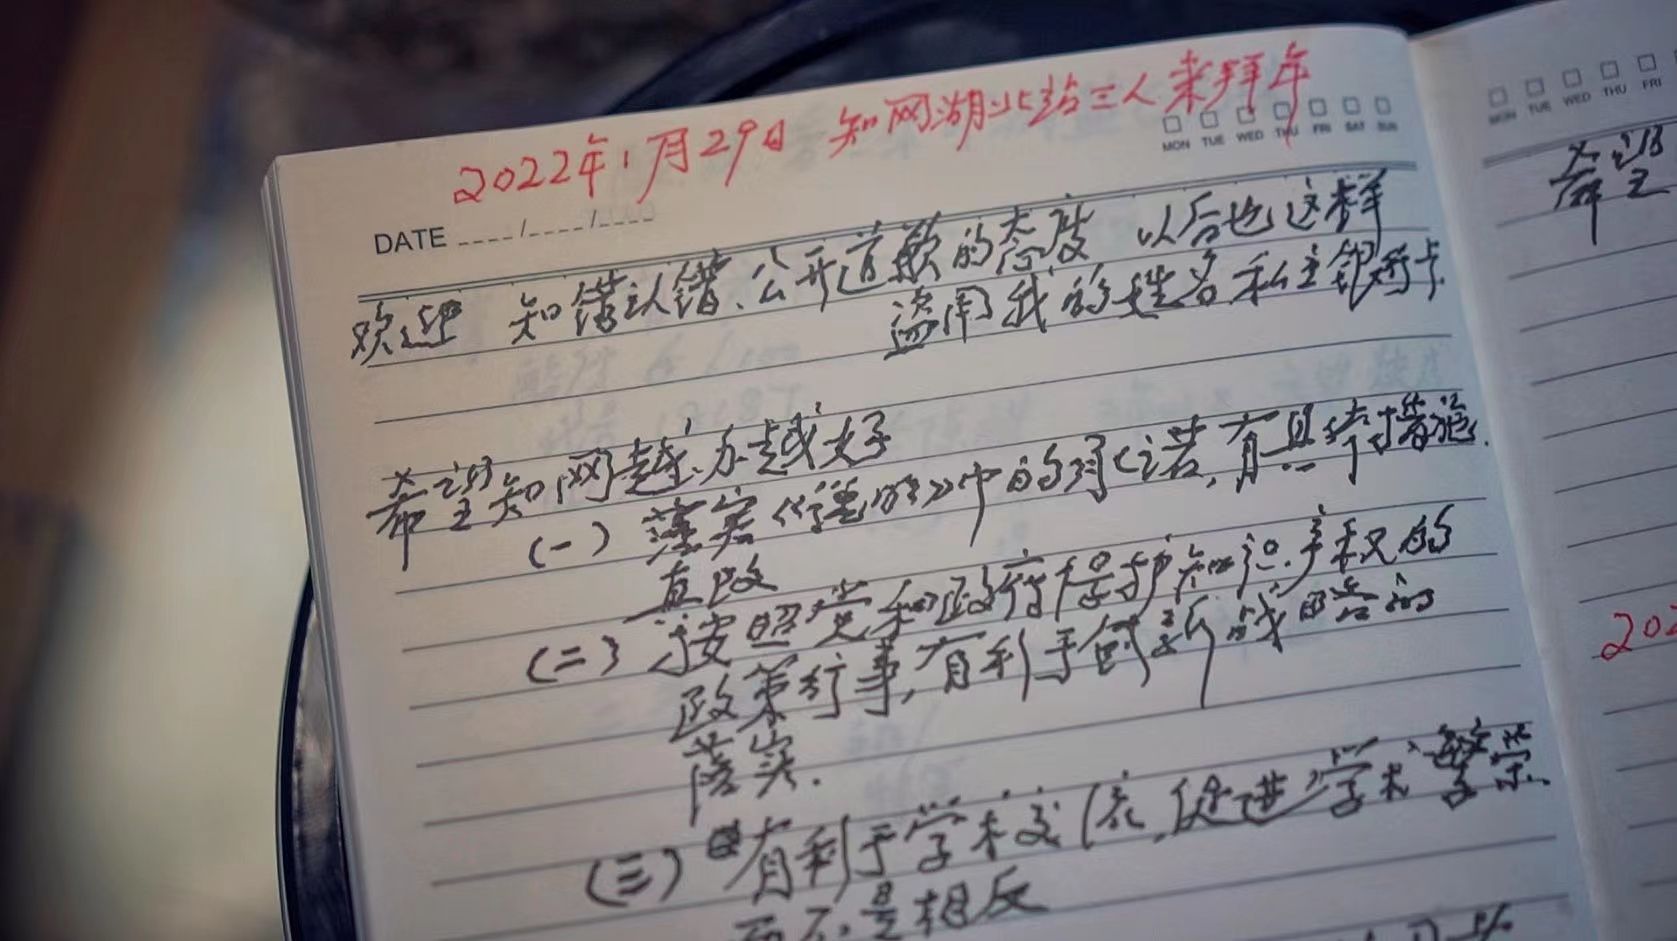 2022年1月29日 知网湖北站三人来拜年
MON TUE WED THU FRI SAT SUN
DATE ----/----/----
欢迎 知错认错、公开道歉的态度 以后也这样
盗用我的姓名 私立银行卡
希望知网越办越好
(一) 落实《说明》中的承诺,有具体措施.
直改
(二) 按照党和政府保护知识产权的
政策行事,有利于创新战略的
落实.
(三) 有利于学术交流,促进学术繁荣.
而不是相反
MON TUE WED THU FRI
希望
202